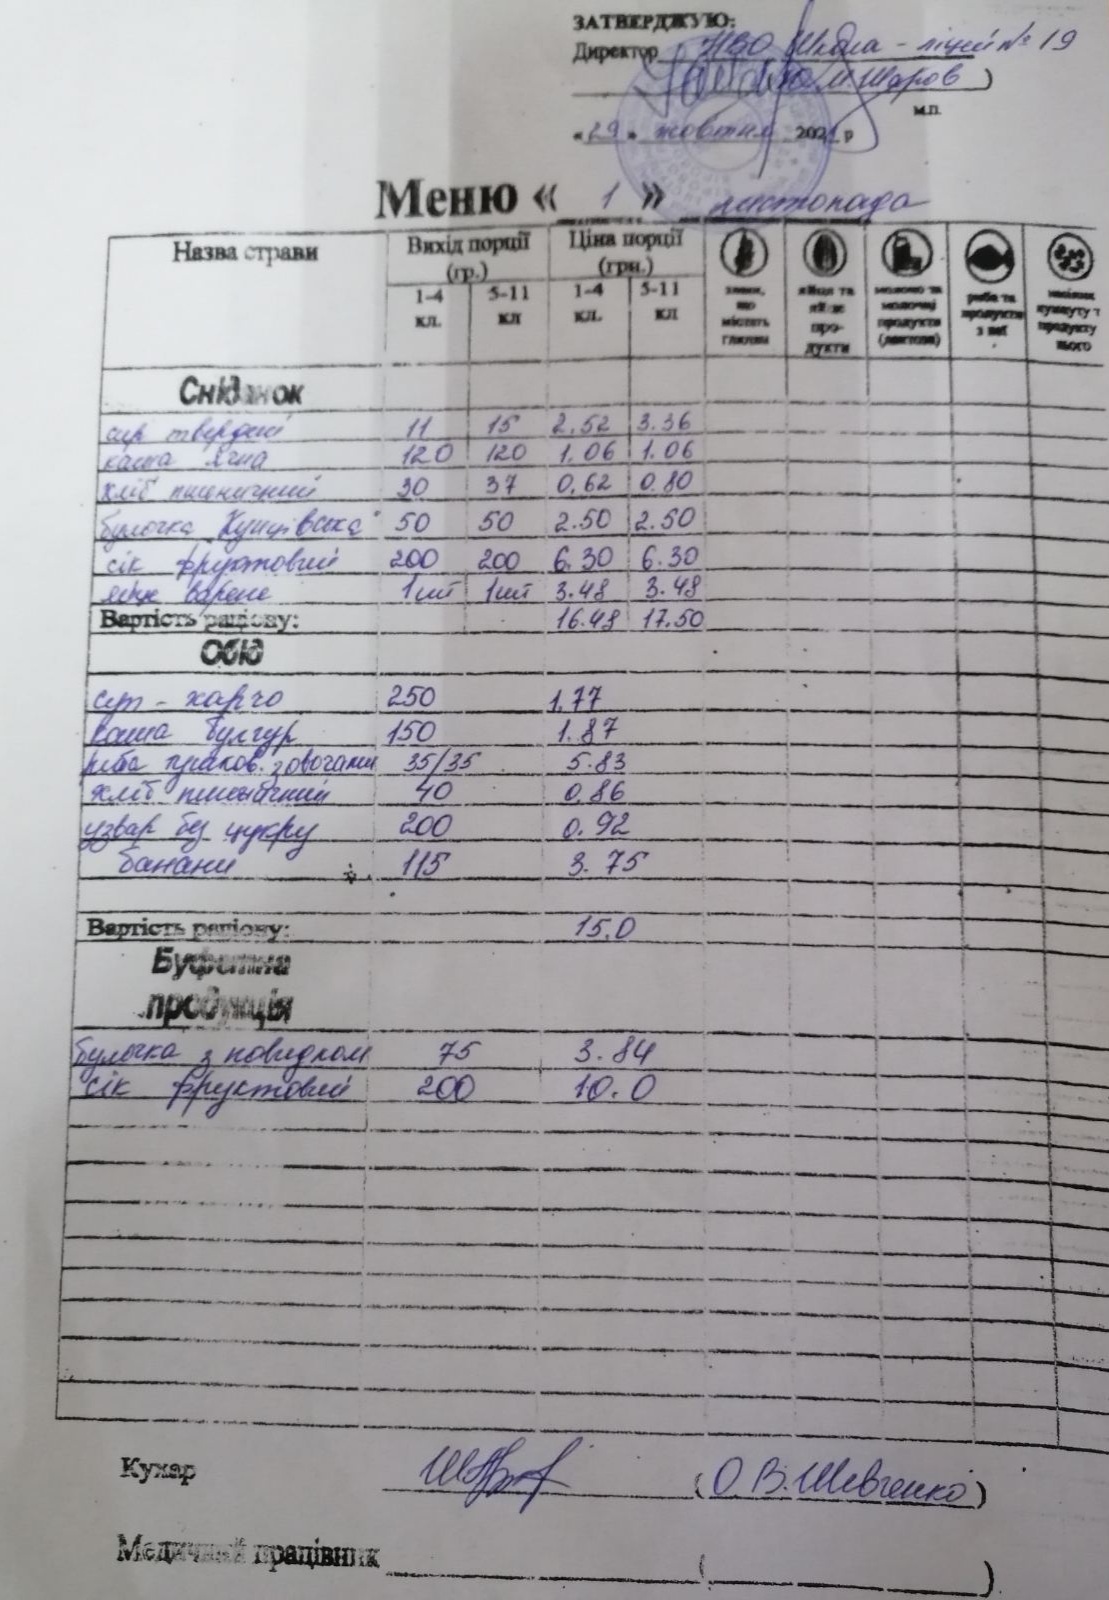 ЗАТВЕРДЖУЮ:
Директор НВО Школа - ліцей № 19
Ю.М. Шаров )
м.п.
« 29 » жовтня 2021 р
Меню « 1 » листопада
Назва страви Вихід порції (гр.) Ціна порції (грн.)
1-4 кл. 5-11 кл 1-4 кл. 5-11 кл
злаки, що містять глютен
яйця та
про-
дукти
молоко та молочні продукти (лактоза)
риба та продукти з неї
кунжуту т
продукту
нього
Сніданок
сир твердий 11 15 2.52 3.36
каша ячна 120 120 1.06 1.06
хліб пшеничний 30 37 0.62 0.80
булочка Кунцівська 50 50 2.50 2.50
сік фруктовий 200 200 6.30 6.30
яйце варене 1шт 1шт 3.48 3.48
Вартість раціону: 16.48 17.50
Обід
суп - харчо 250 1.77
каша булгур 150 1.87
риба з овочами 35/35 5.83
хліб пшеничний 40 0.86
узвар без цукру 200 0.92
банани 115 3.75
Вартість раціону: 15.0
Буфетна
продукція
булочка з повидлом 75 3.84
сік фруктовий 200 10.0
Кухар ( О.В. Шевченко )
Медичний працівник ( )